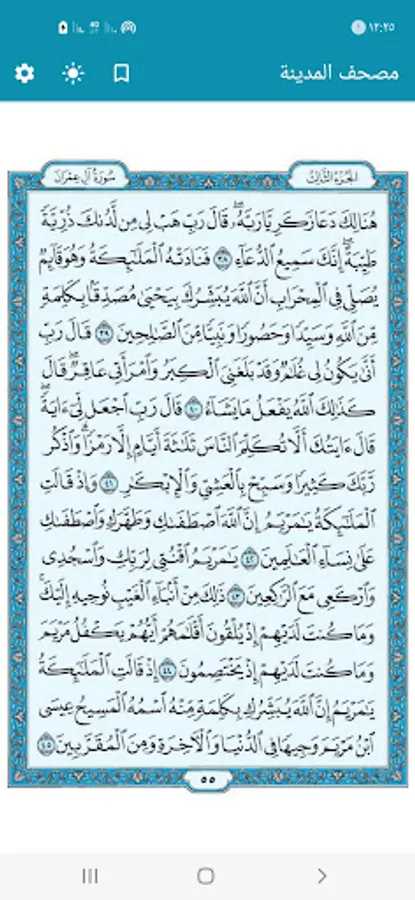 ١٢:٢٥
4G
مصحف المدينة
الجزء الثالث
سورة آل عمران
هُنَالِكَ دَعَا زَكَرِيَّا رَبَّهُۥۖ قَالَ رَبِّ هَبْ لِى مِن لَّدُنكَ ذُرِّيَّةً
طَيِّبَةًۖ إِنَّكَ سَمِيعُ الدُّعَآءِ ٣٨ فَنَادَتْهُ الْمَلَـٰٓئِكَةُ وَهُوَ قَآئِمٌ
يُصَلِّى فِى الْمِحْرَابِ أَنَّ اللَّهَ يُبَشِّرُكَ بِيَحْيَىٰ مُصَدِّقًۢا بِكَلِمَةٍ
مِّنَ اللَّهِ وَسَيِّدًا وَحَصُورًا وَنَبِيًّا مِّنَ الصَّـٰلِحِينَ ٣٩ قَالَ رَبِّ
أَنَّىٰ يَكُونُ لِى غُلَـٰمٌ وَقَدْ بَلَغَنِىَ الْكِبَرُ وَامْرَأَتِى عَاقِرٌۖ قَالَ
كَذَٰلِكَ اللَّهُ يَفْعَلُ مَا يَشَآءُ ٤٠ قَالَ رَبِّ اجْعَل لِّىٓ ءَايَةًۖ
قَالَ ءَايَتُكَ أَلَّا تُكَلِّمَ النَّاسَ ثَلَـٰثَةَ أَيَّامٍ إِلَّا رَمْزًاۗ وَاذْكُر
رَّبَّكَ كَثِيرًا وَسَبِّحْ بِالْعَشِىِّ وَالْإِبْكَـٰرِ ٤١ وَإِذْ قَالَتِ
الْمَلَـٰٓئِكَةُ يَـٰمَرْيَمُ إِنَّ اللَّهَ اصْطَفَىٰكِ وَطَهَّرَكِ وَاصْطَفَىٰكِ
عَلَىٰ نِسَآءِ الْعَـٰلَمِينَ ٤٢ يَـٰمَرْيَمُ اقْنُتِى لِرَبِّكِ وَاسْجُدِى
وَارْكَعِى مَعَ الرَّٰكِعِينَ ٤٣ ذَٰلِكَ مِنْ أَنۢبَآءِ الْغَيْبِ نُوحِيهِ إِلَيْكَۚ
وَمَا كُنتَ لَدَيْهِمْ إِذْ يُلْقُونَ أَقْلَـٰمَهُمْ أَيُّهُمْ يَكْفُلُ مَرْيَمَ
وَمَا كُنتَ لَدَيْهِمْ إِذْ يَخْتَصِمُونَ ٤٤ إِذْ قَالَتِ الْمَلَـٰٓئِكَةُ
يَـٰمَرْيَمُ إِنَّ اللَّهَ يُبَشِّرُكِ بِكَلِمَةٍ مِّنْهُ اسْمُهُ الْمَسِيحُ عِيسَى
ابْنُ مَرْيَمَ وَجِيهًا فِى الدُّنْيَا وَالْـَٔاخِرَةِ وَمِنَ الْمُقَرَّبِينَ ٤٥
٥٥